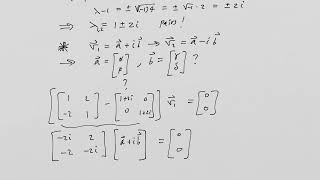 λ-1 = ±√(-1)4 = ±√-1·2 = ±2i
⇒ λ₁,₂ = 1±2i pairs!
* v⃗₁ = a⃗+ib⃗ → v⃗₂ = a⃗-ib⃗
⇒ a⃗ = [α β], b⃗ = [γ δ] ?
?
[[1 2 -2 1] - [1+2i 0 0 1+2i]] v⃗₁ = [0 0]
[-2i 2 -2 -2i] [a⃗+ib⃗] = [0 0]